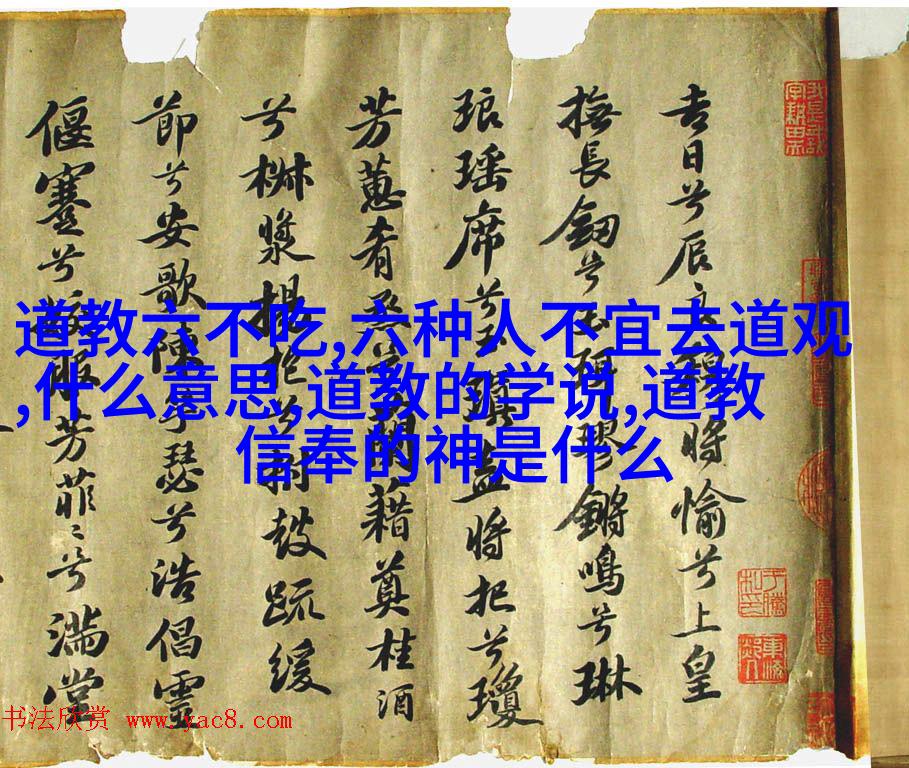 道教六不吃,六种人不宜去道观
,什么意思,道教的学说,道教
信奉的神是什么
吉日兮辰良穆將愉兮上皇
撫長劔兮玉珥璆鏘鳴兮琳
琅瑶席兮玉瑱盍將把兮瓊
芳蕙肴烝兮蘭藉奠桂酒
兮椒漿揚枹兮拊鼓疏緩
節兮安歌陳竽瑟兮浩倡靈
偃蹇兮姣服芳菲〻兮滿堂
书法欣赏 www.yac8.com